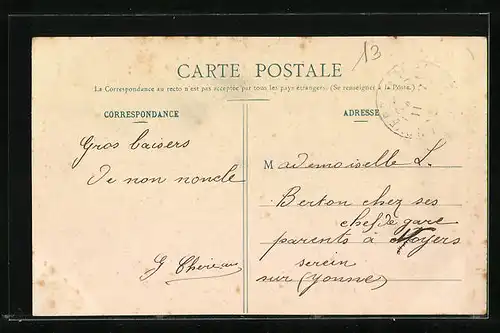 13
CARTE POSTALE
La Correspondance au recto n'est pas acceptée par tous les pays étrangers. (Se renseigner à la Poste.)
CORRESPONDANCE
ADRESSE
Gros baisers
De non noncle
G Chereau
Mademoiselle L.
Berton chez ses
chef de gare
parents à Noyers
serein
sur (Yonne)